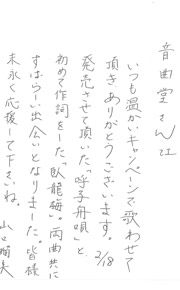 音曲堂さん江
いつも温かいキャンペーンで歌わせて
頂きありがとうございます。2/18
発売させて頂いた「呼子舟唄」と
初めて作詞をした「臥龍梅」。両曲共に
すばらしい出会いとなりました。皆様
末永く応援して下さいね。